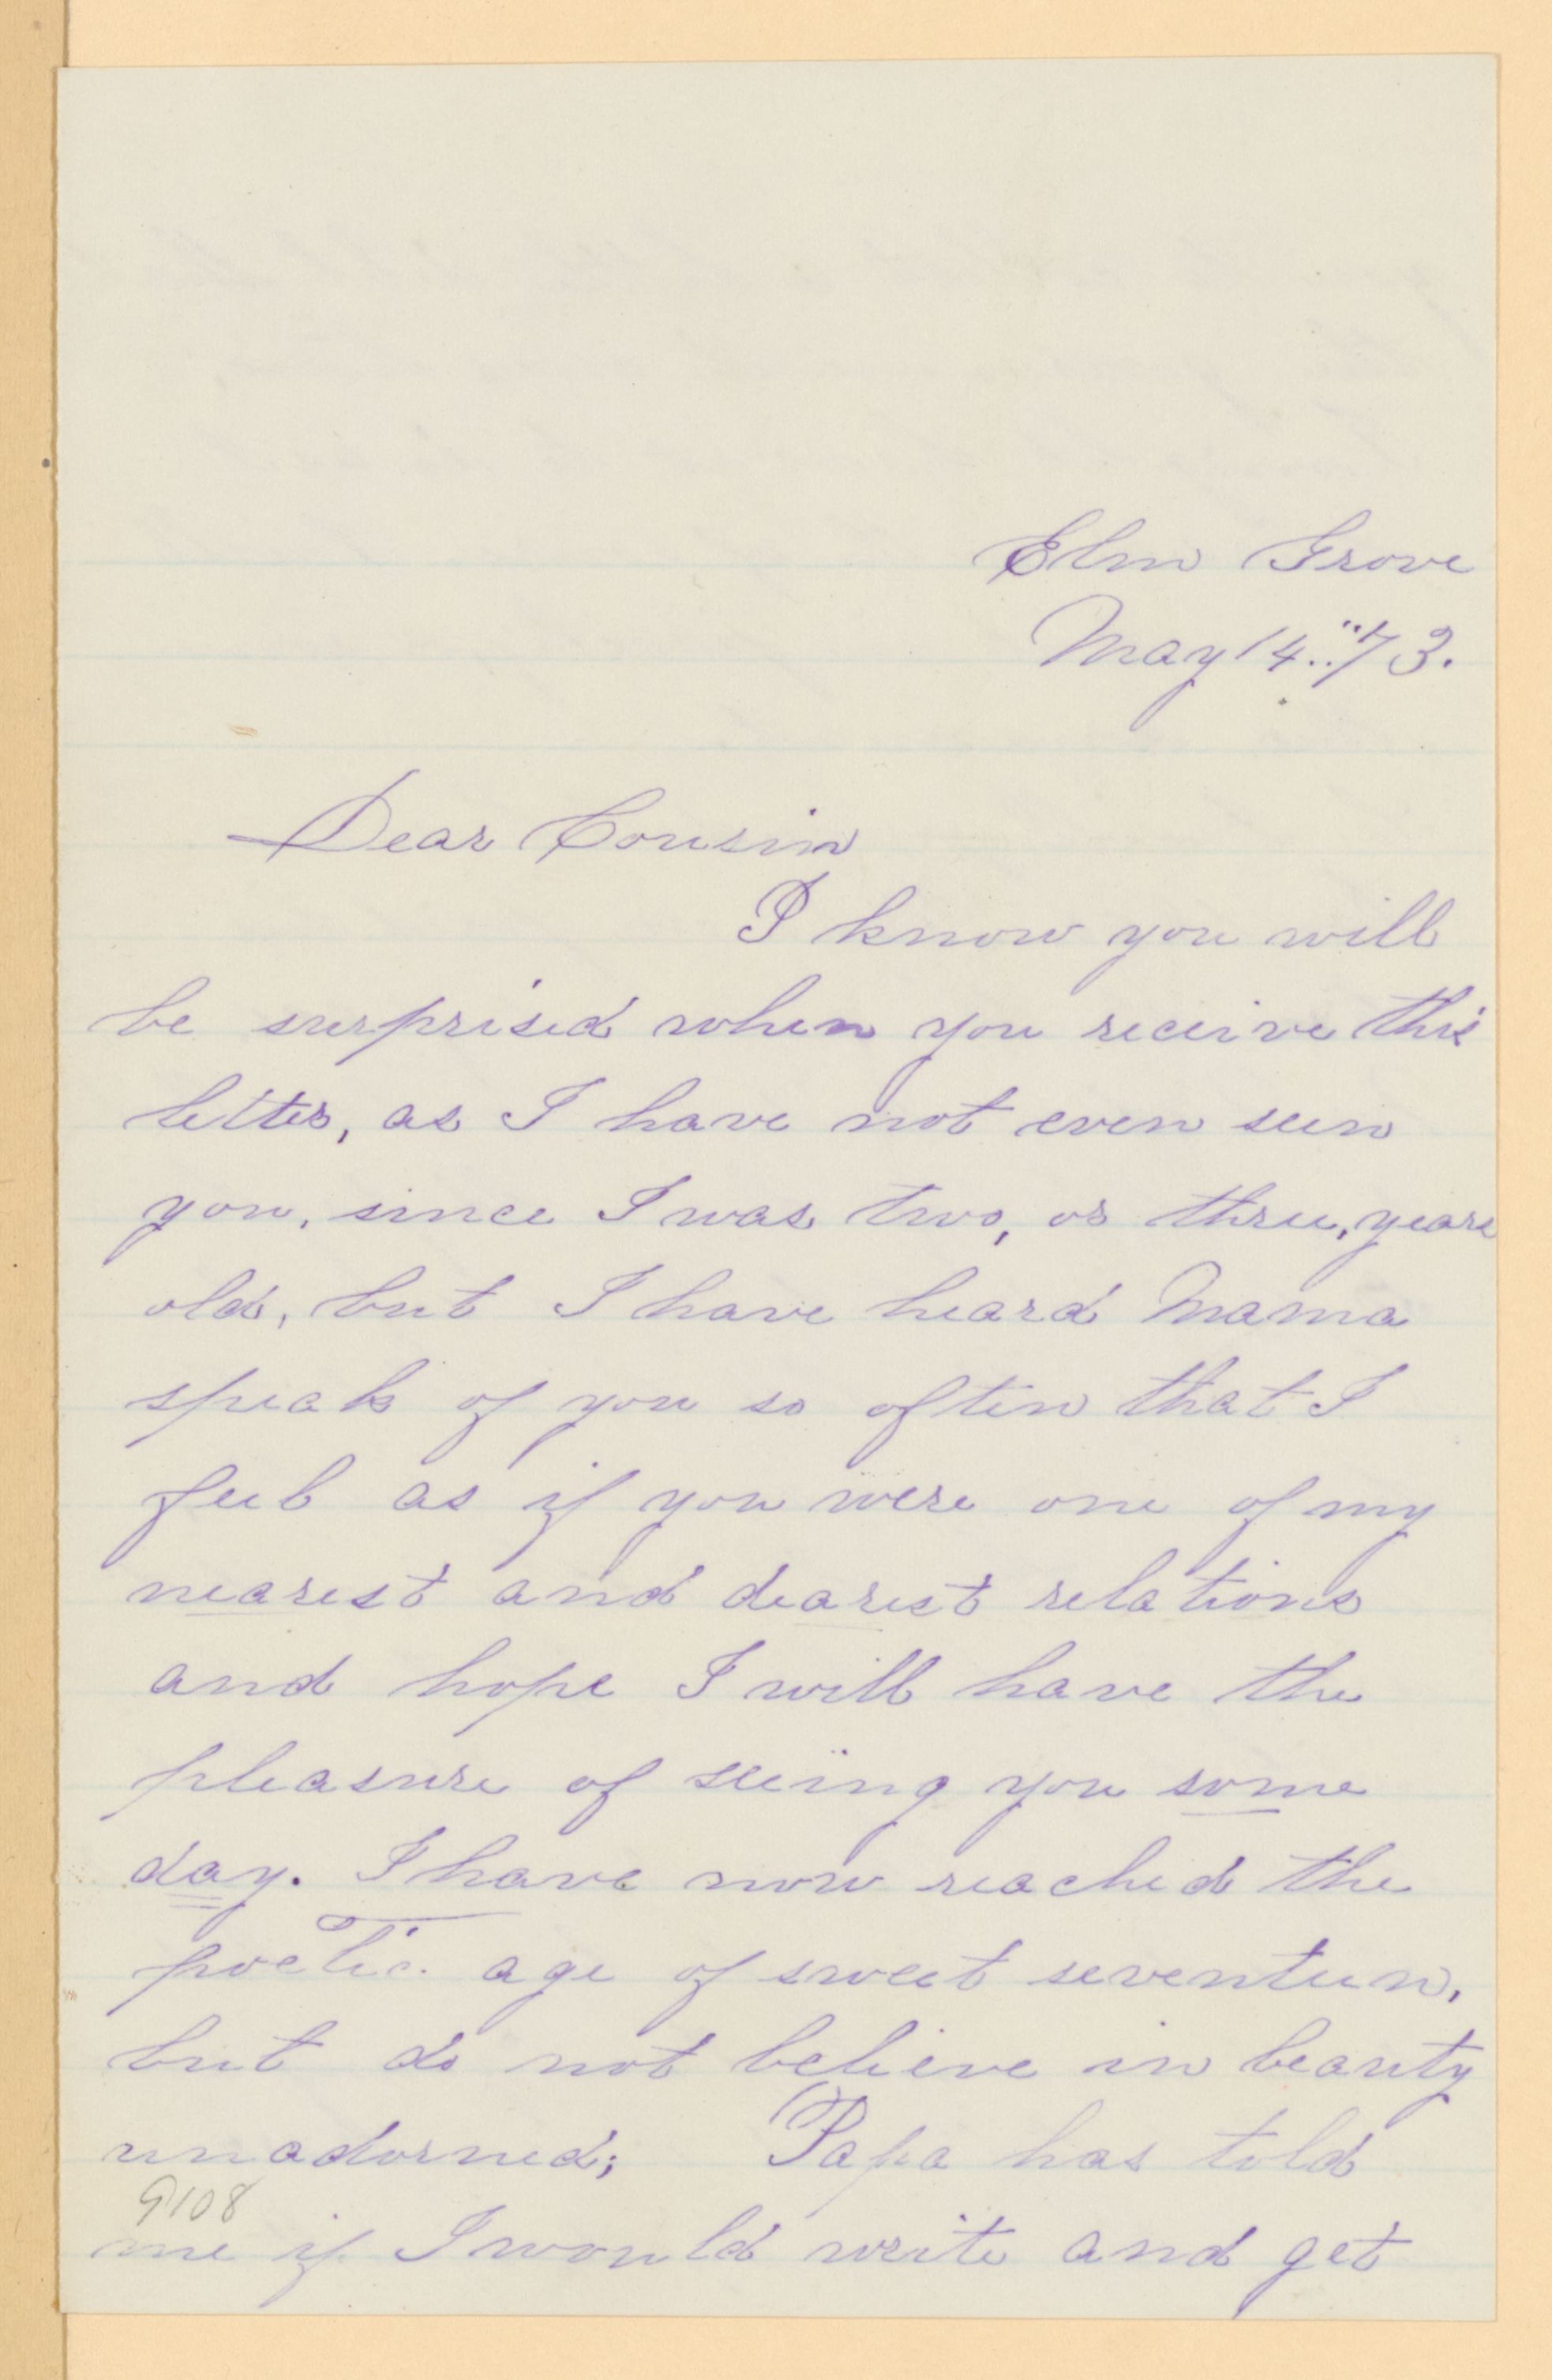 Elm Grove
May 14..''73.
Dear Cousin
I know you will
be surprised when you receive this
letter, as I have not even seen
you, since I was two, or three, years
old, but I have heard Mama
speak of you so often that I
feel as if you were one of my
nearest and dearest relations
and hope I will have the
pleasure of seeing you some
day. I have now reached the
poetic age of sweet seventeen,
but do not believe in beauty
unadorned; Papa has told
9108
me if I would write and get